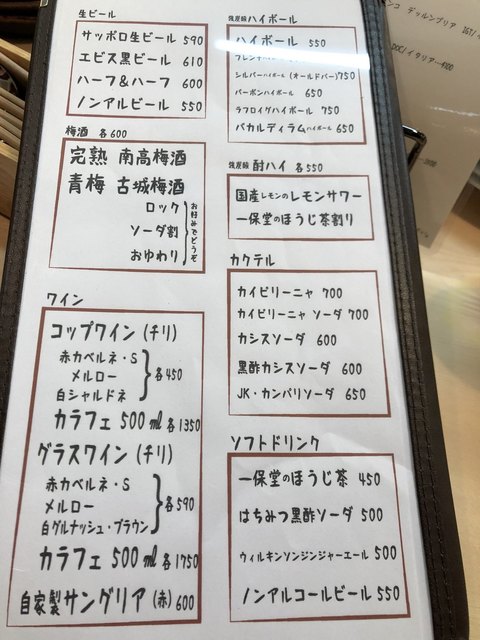 生ビール
サッポロ生ビール 590
エビス黒ビール 610
ハーフ&ハーフ 600
ノンアルビール 550
梅酒 各600
完熟 南高梅酒
青梅 古城梅酒
ロック
ソーダ割
おゆわり
お好みでどうぞ
ワイン
コップワイン (チリ)
赤カベルネ・S
メルロー
白シャルドネ
各450
カラフェ 500ml 各1350
グラスワイン (チリ)
赤カベルネ・S
メルロー
白グルナッシュ・ブラウン
各590
カラフェ 500ml 各1750
自家製サングリア (赤) 600
強炭酸ハイボール
ハイボール 550
シルバーハイボール (オールドパー) 750
バーボンハイボール 650
ラフロイグハイボール 750
バカルディラムハイボール 650
強炭酸 酎ハイ 各550
国産レモンのレモンサワー
一保堂のほうじ茶割り
カクテル
カイピリーニャ 700
カイピリーニャ ソーダ 700
カシスソーダ 600
黒酢カシスソーダ 600
JK・カンパリソーダ 650
ソフトドリンク
一保堂のほうじ茶 450
はちみつ黒酢ソーダ 500
ウィルキンソンジンジャーエール 500
ノンアルコールビール 550
ンコ デッルンブリア IGT/
DOC/イタリア…4900